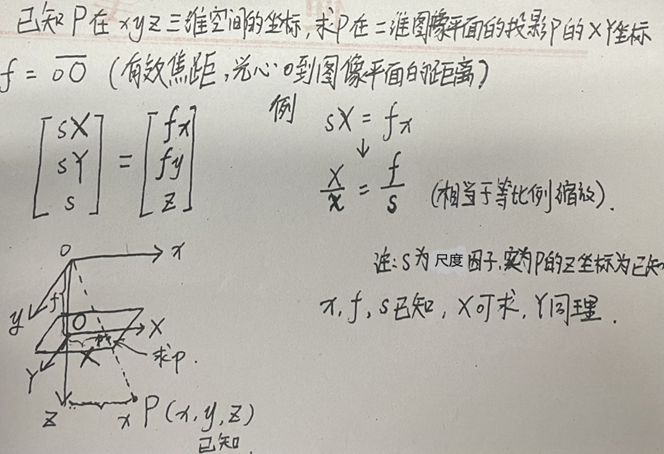 已知P在xyz三维空间的坐标,求P在二维图像平面的投影P的XY坐标
f = oO (有效焦距,光心o到图像平面的距离)
[sX sY s] = [fx fy z]
例 sX = fx
↓
X/x = f/s (相当于等比例缩放).
注:s为尺度因子,实为P的Z坐标为已知
x,f,s已知,X可求,Y同理.
o
x
f
y
O
X
X
Y
求p.
z
x P(x,y,z)
已知.